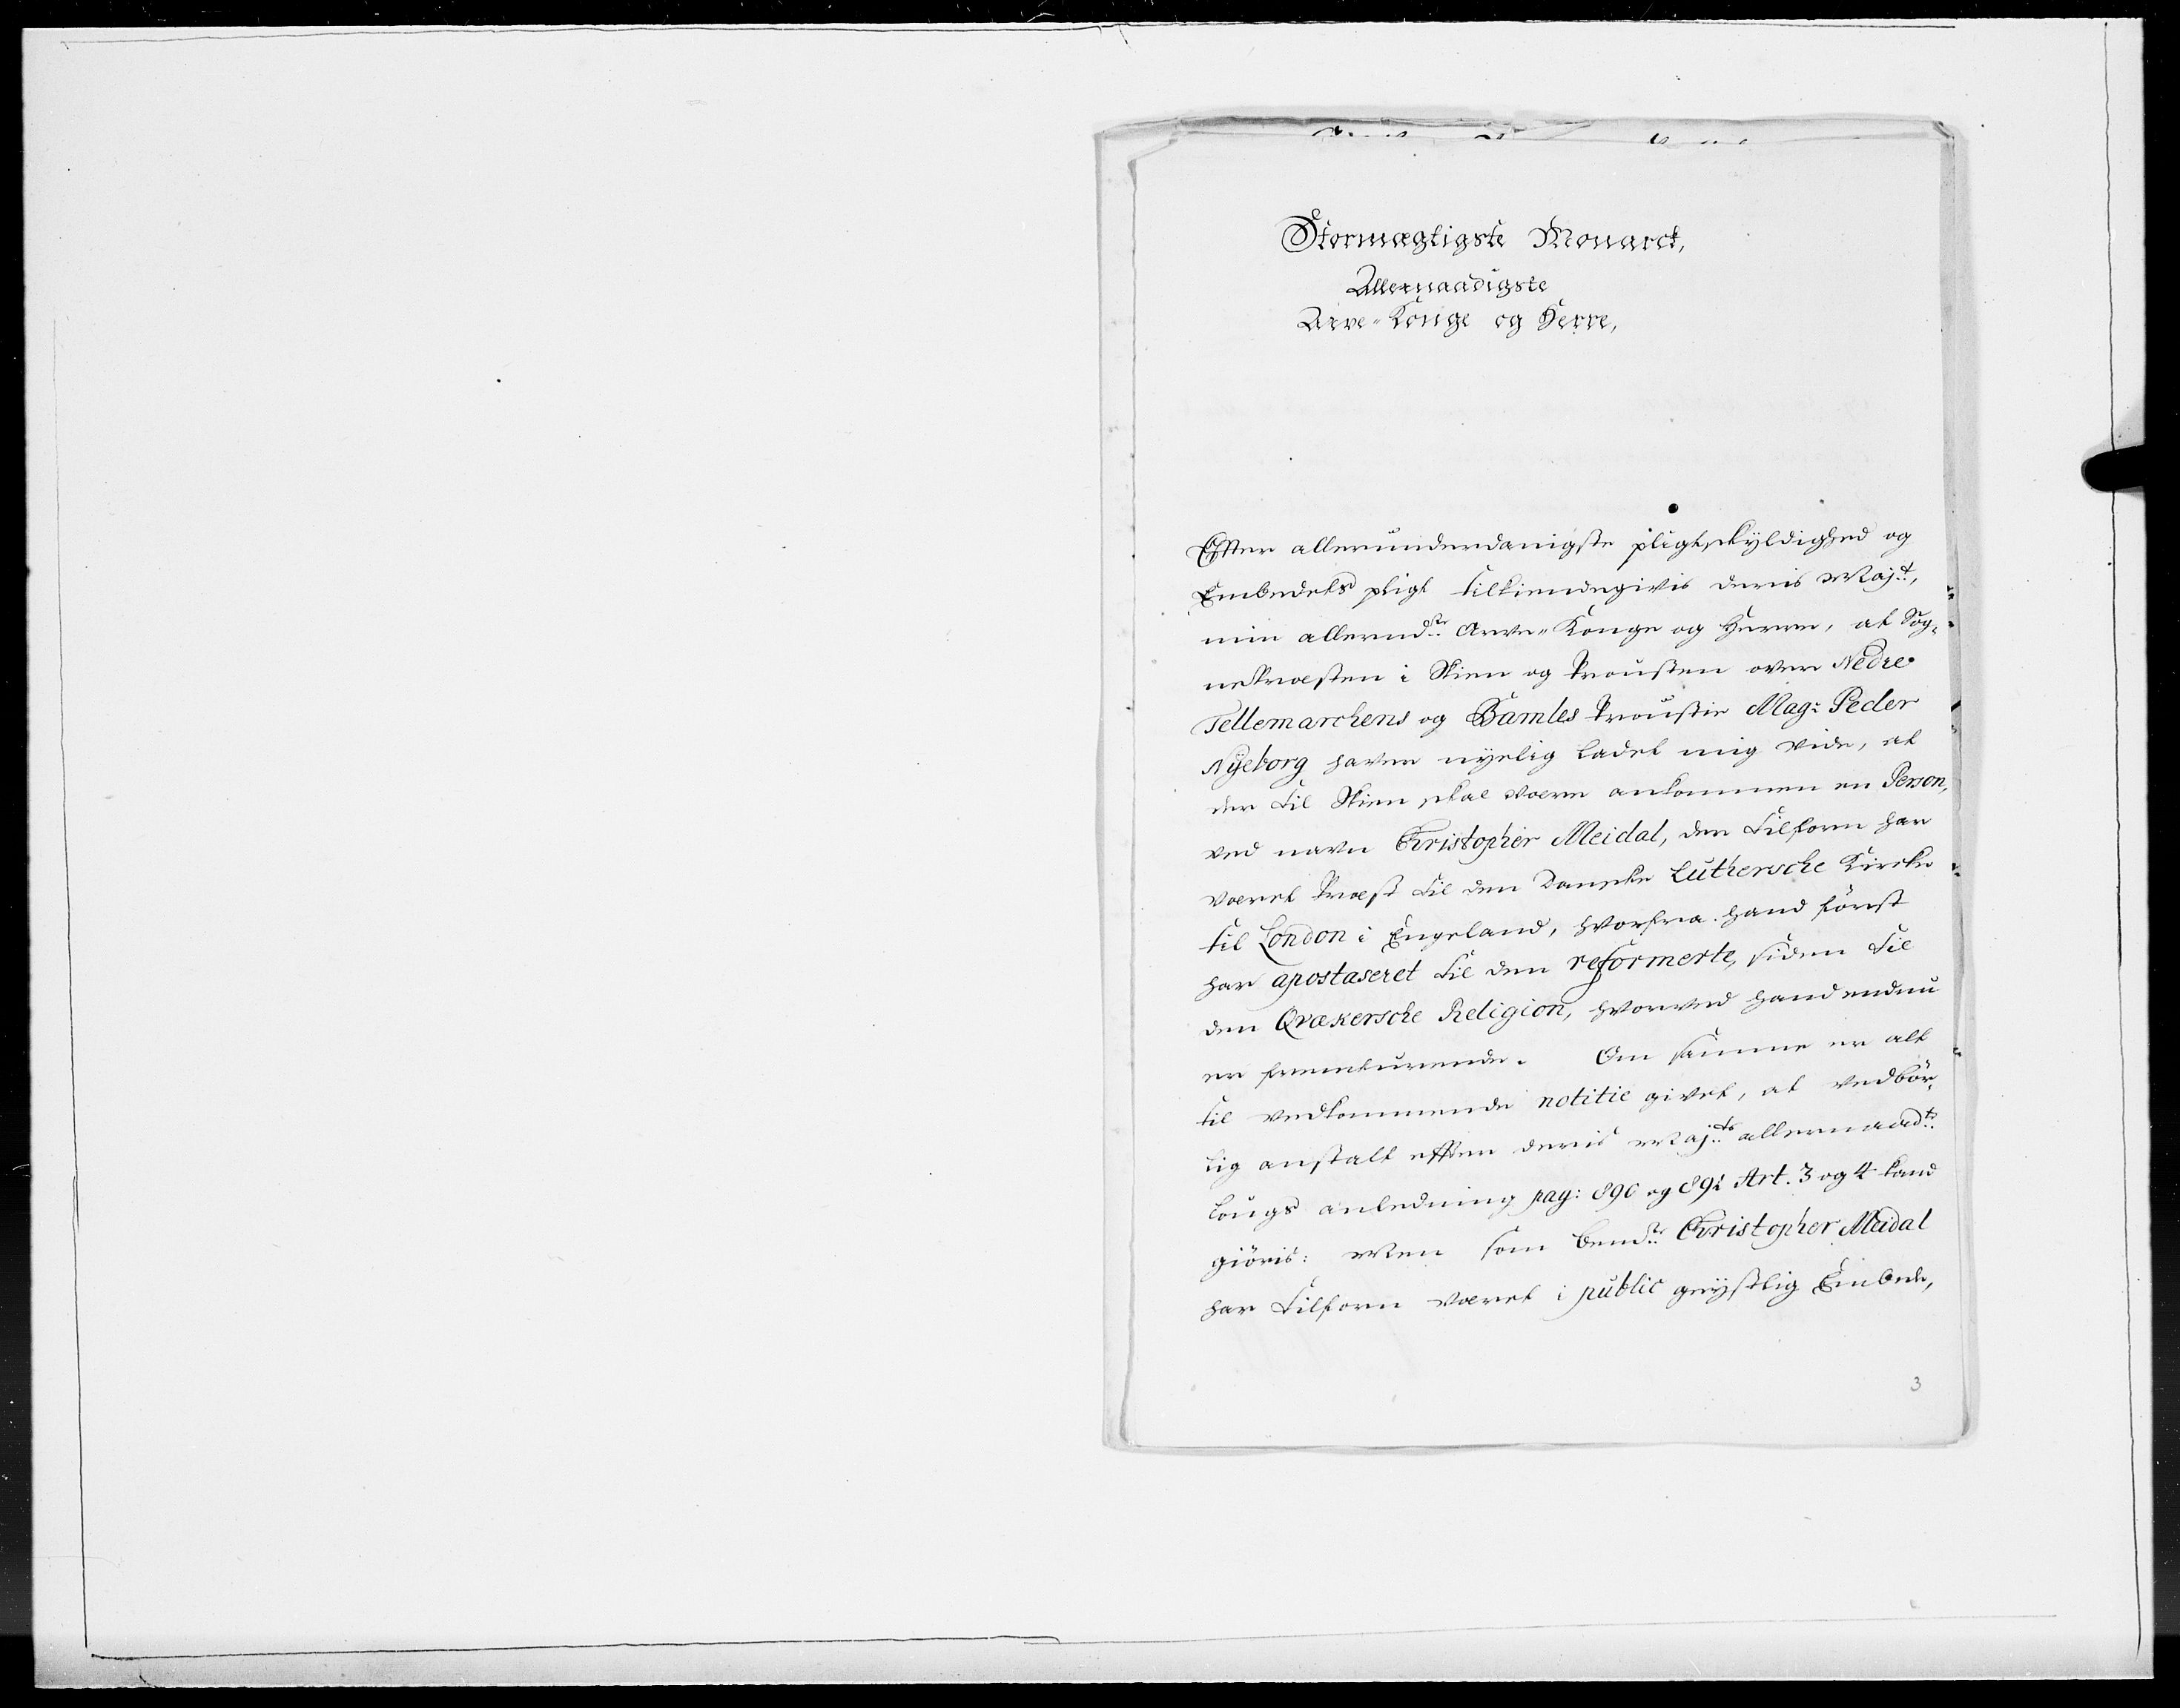 Stormægtigste Monarck,
Allernaadigste
Arve-Konge og Herre,
Effter allerunderdanigste pligtskyldighed og
Embedets pligt tilkiendegivis deris Maj:t,
min allernd:ste Arve-Konge og Herre, at Sog-
nePræsten i Skien og Prousten over Nedre
Tellemarchens og Bamles Proustie Mag: Peder
Nyeborg haver nyelig ladet mig vide, at
der til Skien skal være ankommen en Person,
ved navn Christopher Meidal, der tilforn har
været Præst til den Danske Luthersche Kircke
til London i Engeland, hvorfra hand först
har apostaseret til den reformerte, siden til
den Qvækersche Religion, hvorved hand endnu
er fremturende. Om samme er alt
til vedkommende notitie givet, at vedbör-
lig anstalt effter deris Maj:ts allernaad:te
Lougs anledning pag: 890 og 891 Art. 3 og 4 kand
giöris: Men som bem:te Christopher Meidal
har tilforn været i public geystlig Embede,
3